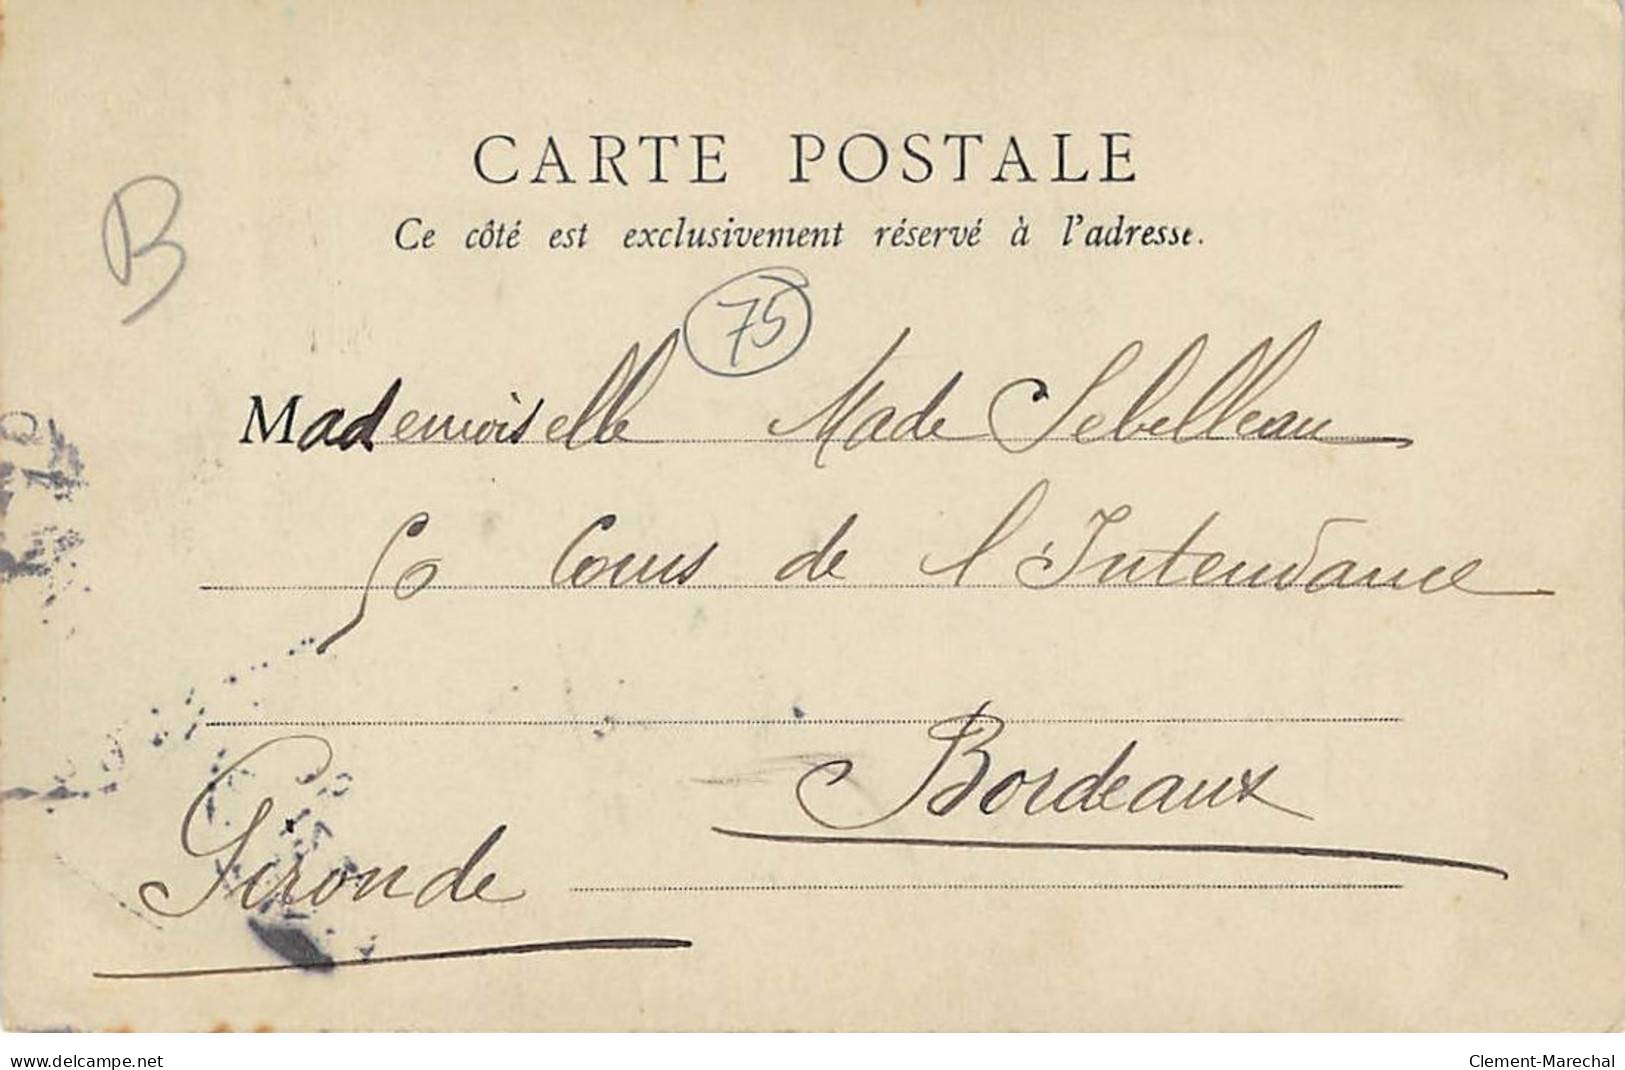 CARTE POSTALE
Ce côté est exclusivement réservé à l'adresse.
B
75
Mademoiselle Made Sebelleau
50 Cours de l'Intendance
Bordeaux
Gironde
www.delcampe.net
Clement-Marechal